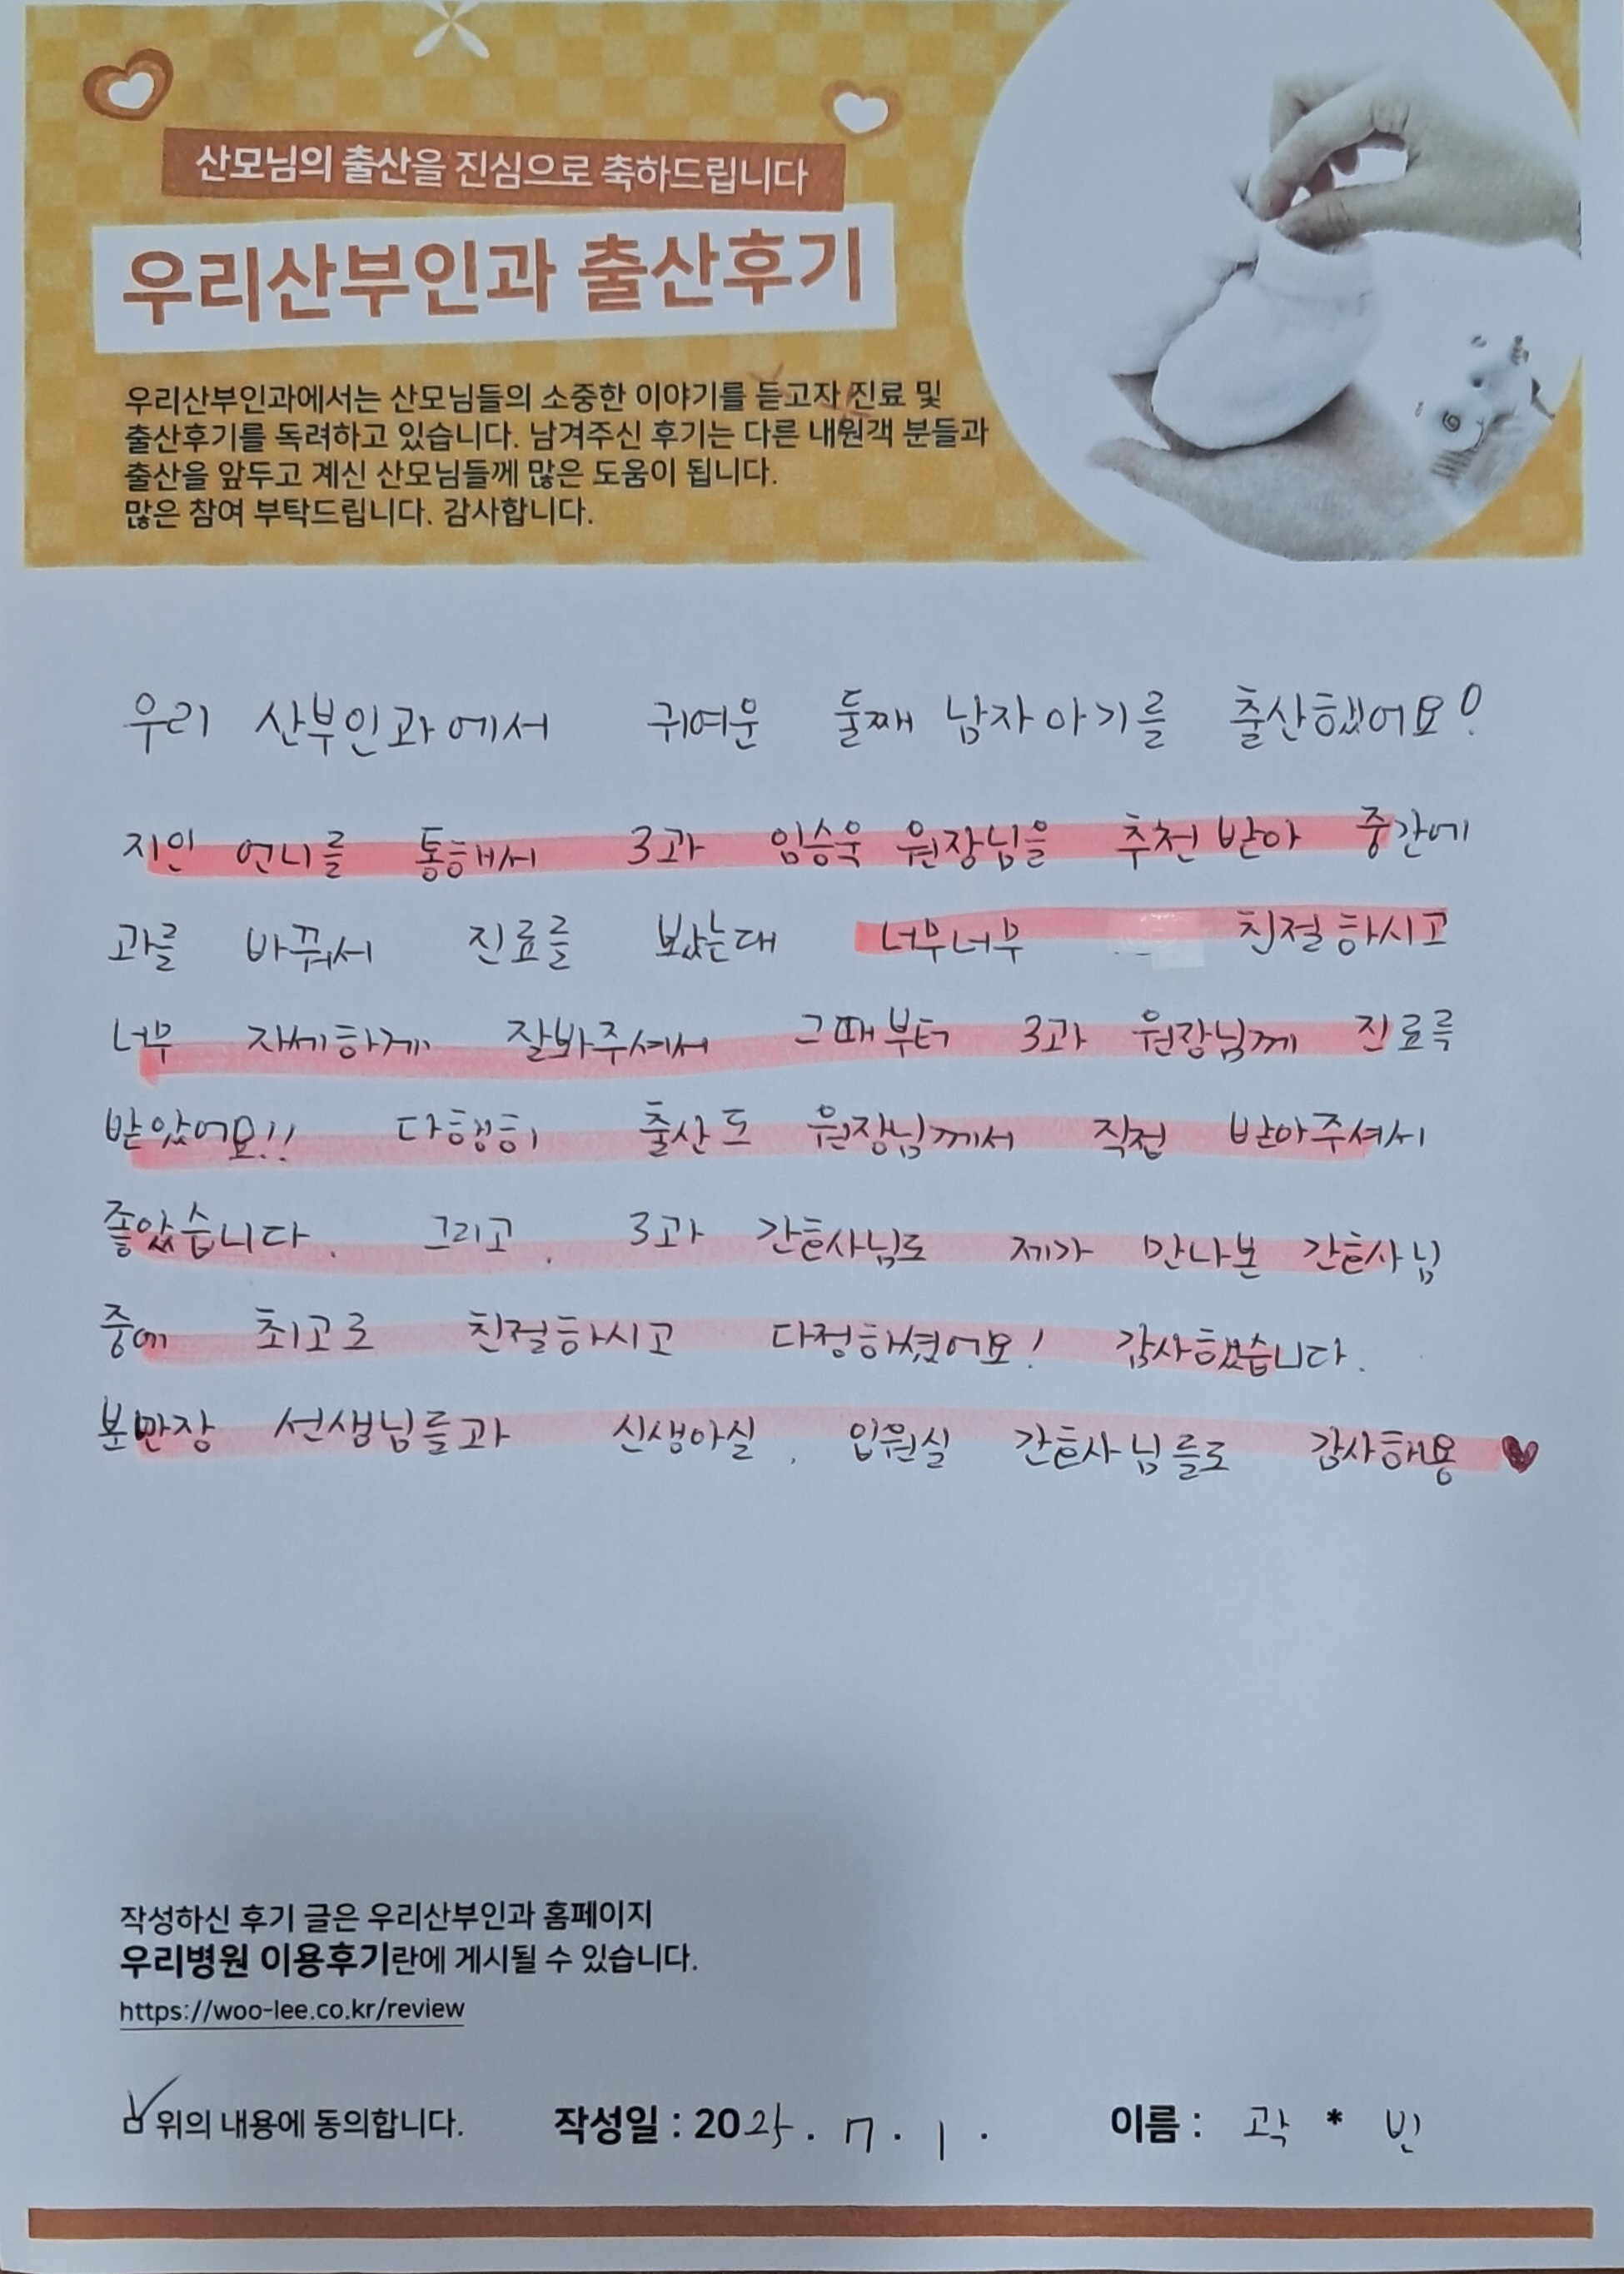 산모님의 출산을 진심으로 축하드립니다
우리산부인과 출산후기
우리산부인과에서는 산모님들의 소중한 이야기를 듣고자 진료 및
출산후기를 독려하고 있습니다. 남겨주신 후기는 다른 내원객 분들과
출산을 앞두고 계신 산모님들께 많은 도움이 됩니다.
많은 참여 부탁드립니다. 감사합니다.
우리 산부인과에서 귀여운 둘째 남자아기를 출산했어요!
지인 언니를 통해서 3과 임승욱 원장님을 추천 받아 중간에
과를 바꿔서 진료를 봤는대 너무너무 친절하시고
너무 자세하게 잘봐주셔서 그때부터 3과 원장님께 진료를
받았어요!! 다행히 출산도 원장님께서 직접 받아주셔서
좋았습니다. 그리고. 3과 간호사님도 제가 만나본 간호사님
중에 최고로 친절하시고 다정하셨어요! 감사했습니다.
분만장 선생님들과 신생아실, 입원실 간호사님들도 감사해용 ♥
작성하신 후기 글은 우리산부인과 홈페이지
우리병원 이용후기란에 게시될 수 있습니다.
https://woo-lee.co.kr/review
위의 내용에 동의합니다. 작성일 : 2025. 7. 1. 이름 : 곽 * 빈